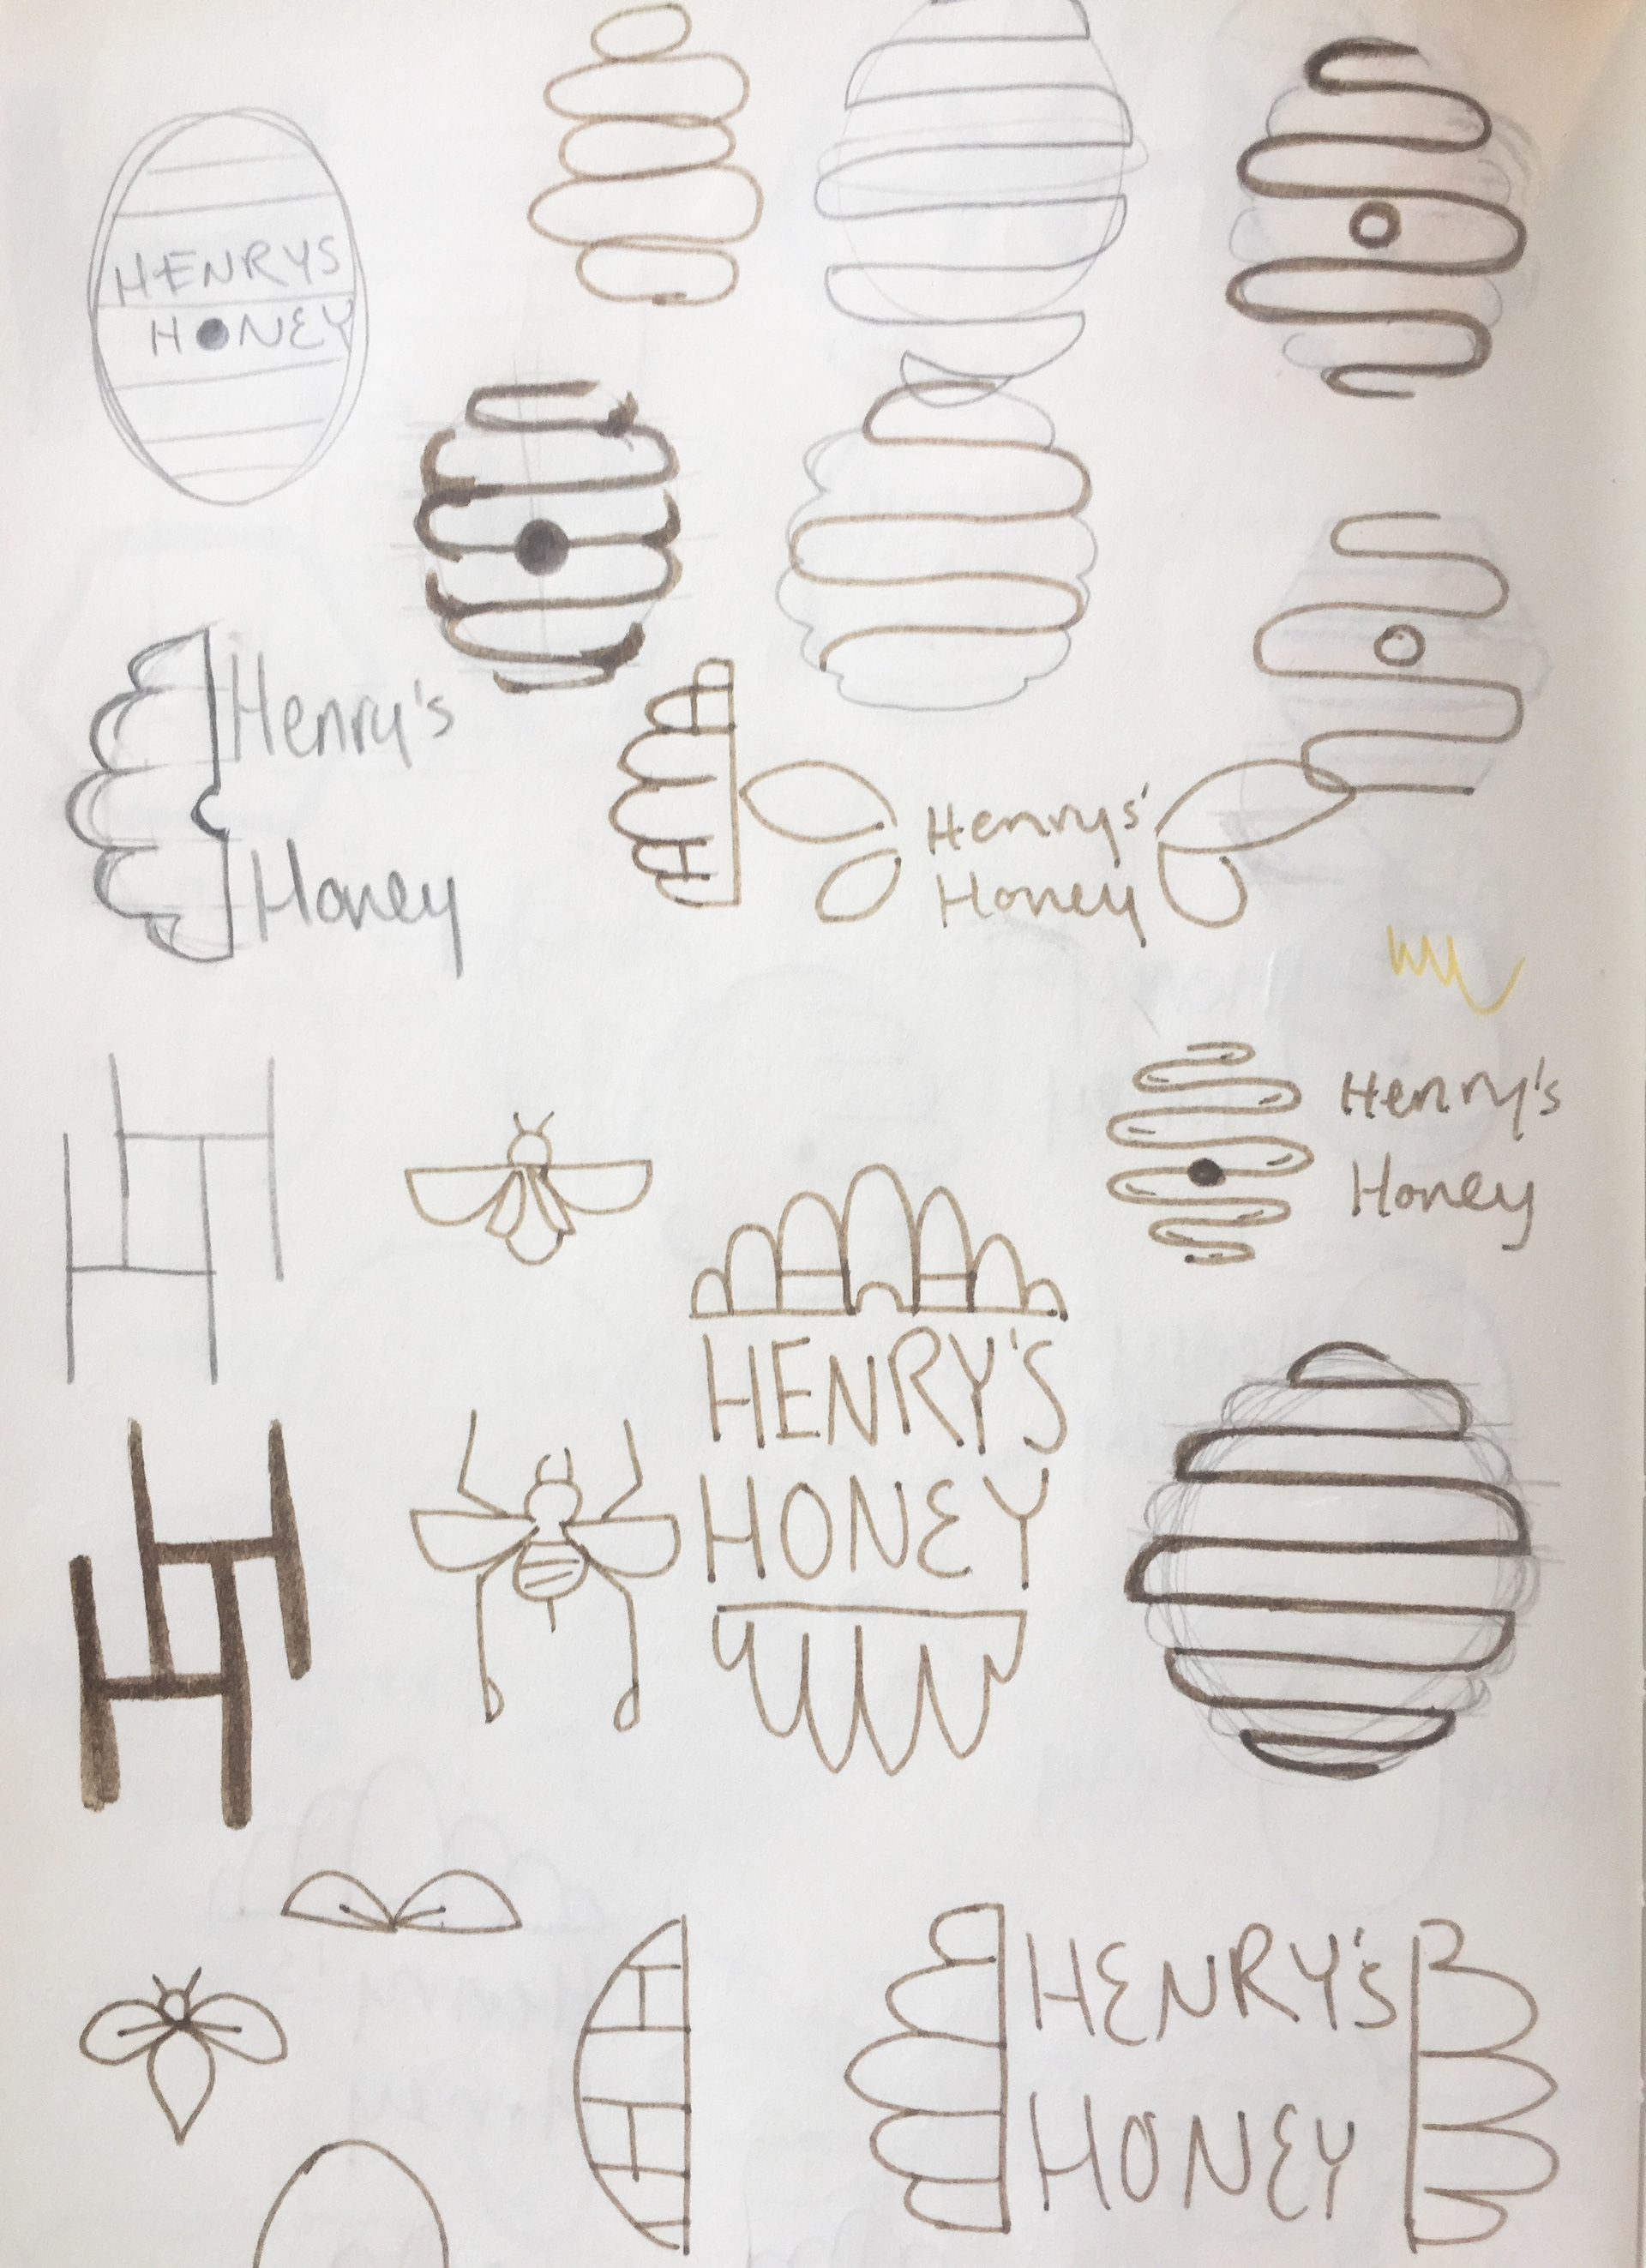 HENRYS
HONEY
Henry's
Honey
Henrys'
Honey
Henry's
Honey
HENRY'S
HONEY
HENRY'S
HONEY